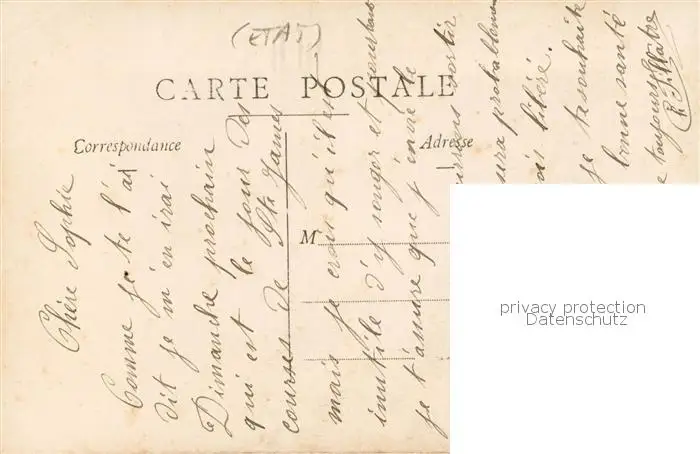 (ETAT)
CARTE POSTALE
Correspondance
Adresse
M
Chère Sophie
Comme je te l'ai
dit je m'en irai
Dimanche prochain
qui est le jour des
courses de Sts James
mais je crois qu'il est
inutile d'y songer et pourtant
je t'assure que j'ai envie de
sortir
sera probablement
libéré.
je te souhaite
bonne santé
toujours
privacy protection
Datenschutz